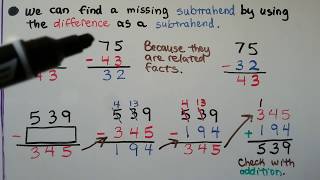 we can find a missing subtrahend by using
the difference as a subtrahend.
75
- 43
32
Because they
are related
facts.
75
- 32
43
539
-
345
4 13
539
- 345
194
4 13
539
- 194
345
1
345
+ 194
539
Check with
addition.